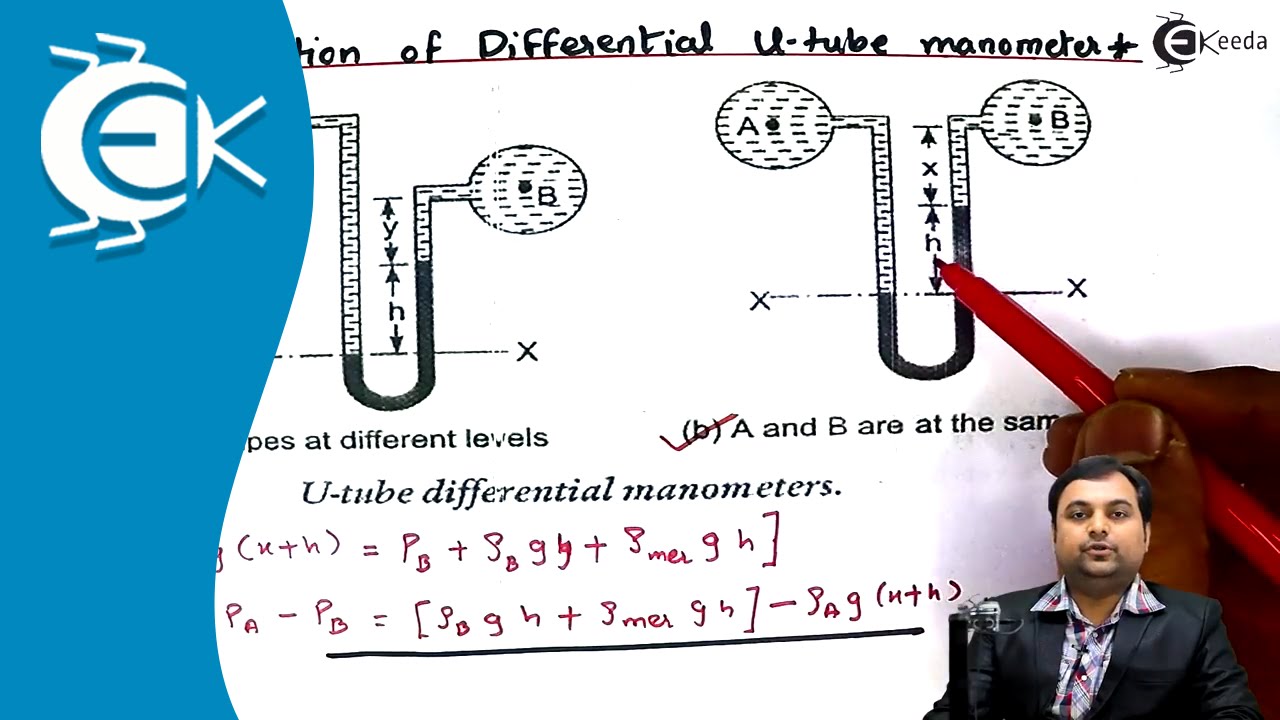 EK
tion of Differential U-tube manometer *
EKeeda
A
B
x
h
X
X
B
y
h
X
pes at different levels
(b) A and B are at the sam
U-tube differential manometers.
g(x+h) = P_B + ρ_B g y + ρ_mer g h]
P_A - P_B = [ρ_B g h + ρ_mer g h] - ρ_A g (x+h)